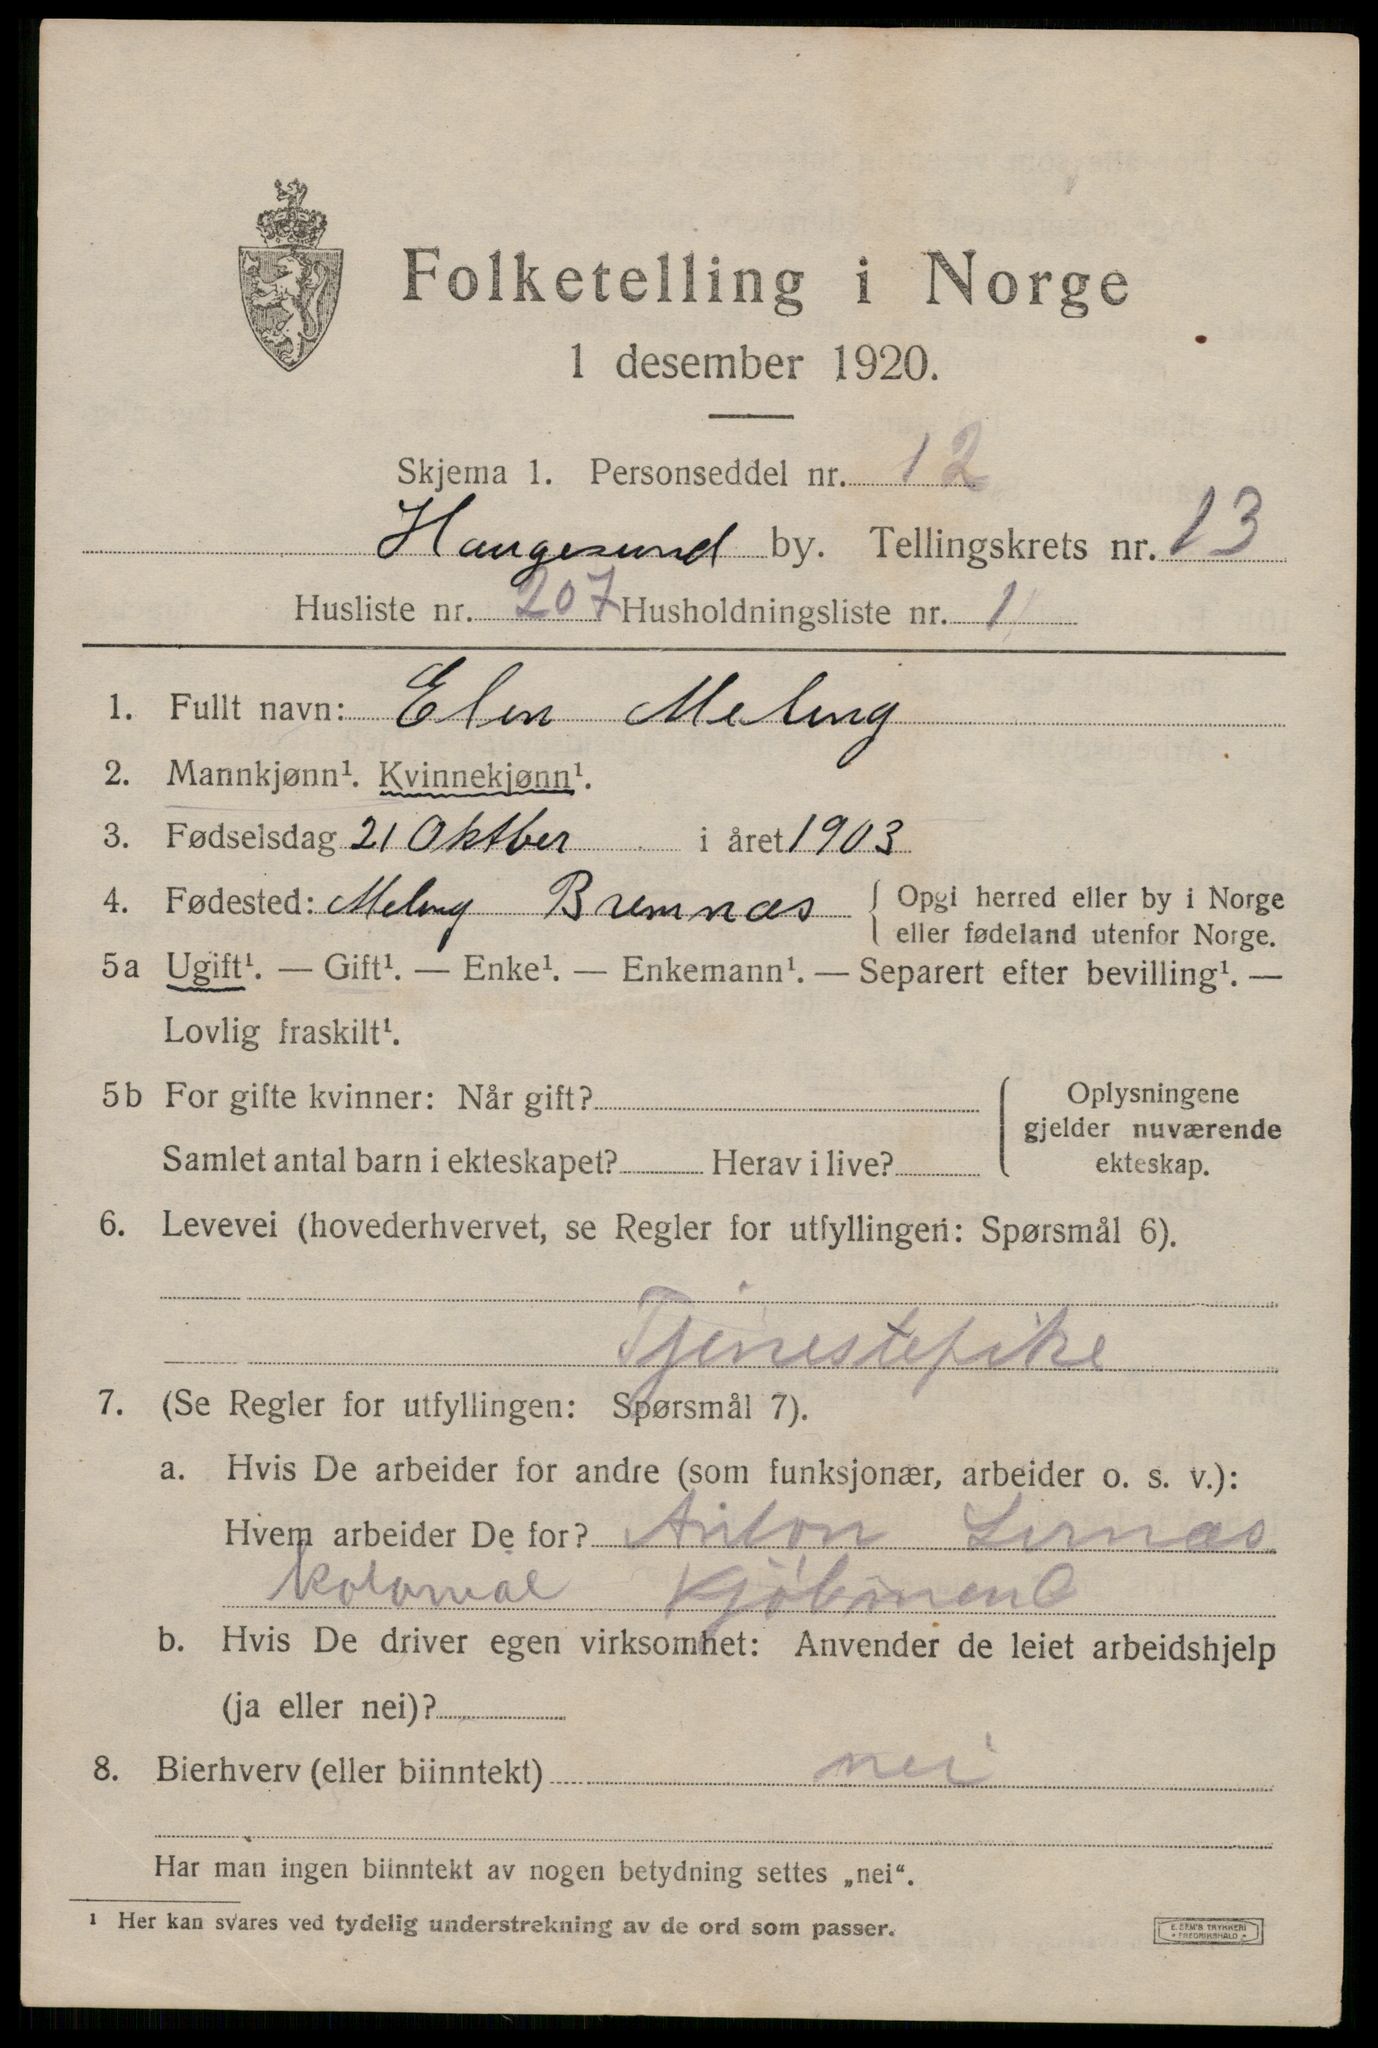 Folketelling i Norge
1 desember 1920.
Skjema 1. Personseddel nr. 12
Haugesund by. Tellingskrets nr. 13
Husliste nr. 207 Husholdningsliste nr. 1
1. Fullt navn: Elen Meling
2. Mannkjønn¹. Kvinnekjønn¹.
3. Fødselsdag 21 Oktber i året 1903
4. Fødested: Meling Bremnæs { Opgi herred eller by i Norge
eller fødeland utenfor Norge.
5a Ugift¹. — Gift¹. — Enke¹. — Enkemann¹. — Separert efter bevilling¹. —
Lovlig fraskilt¹.
5b For gifte kvinner: Når gift? { Oplysningene
gjelder nuværende
Samlet antal barn i ekteskapet? Herav i live? ekteskap.
6. Levevei (hovederhvervet, se Regler for utfyllingen: Spørsmål 6).
Tjenestepike
7. (Se Regler for utfyllingen: Spørsmål 7).
a. Hvis De arbeider for andre (som funksjonær, arbeider o. s. v.):
Hvem arbeider De for? Anton
kolonial
b. Hvis De driver egen virksomhet: Anvender de leiet arbeidshjelp
(ja eller nei)?
8. Bierhverv (eller biinntekt) nei
Har man ingen biinntekt av nogen betydning settes „nei“.
¹ Her kan svares ved tydelig understrekning av de ord som passer.
E. SEM'S TRYKKERI
FREDRIKSHALD